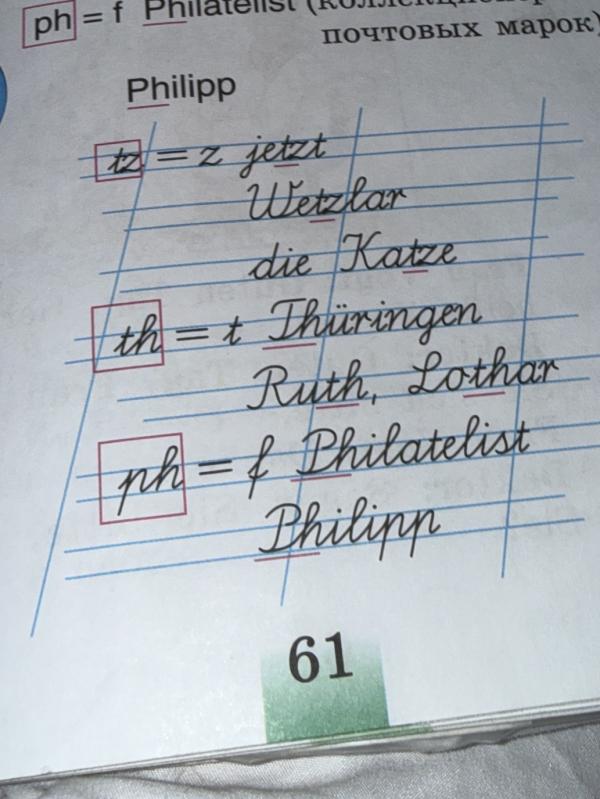 ph = f Philatelist (коллекционер
почтовых марок)
Philipp
tz = z jetzt
Wetzlar
die Katze
th = t Thüringen
Ruth, Lothar
ph = f Philatelist
Philipp
61